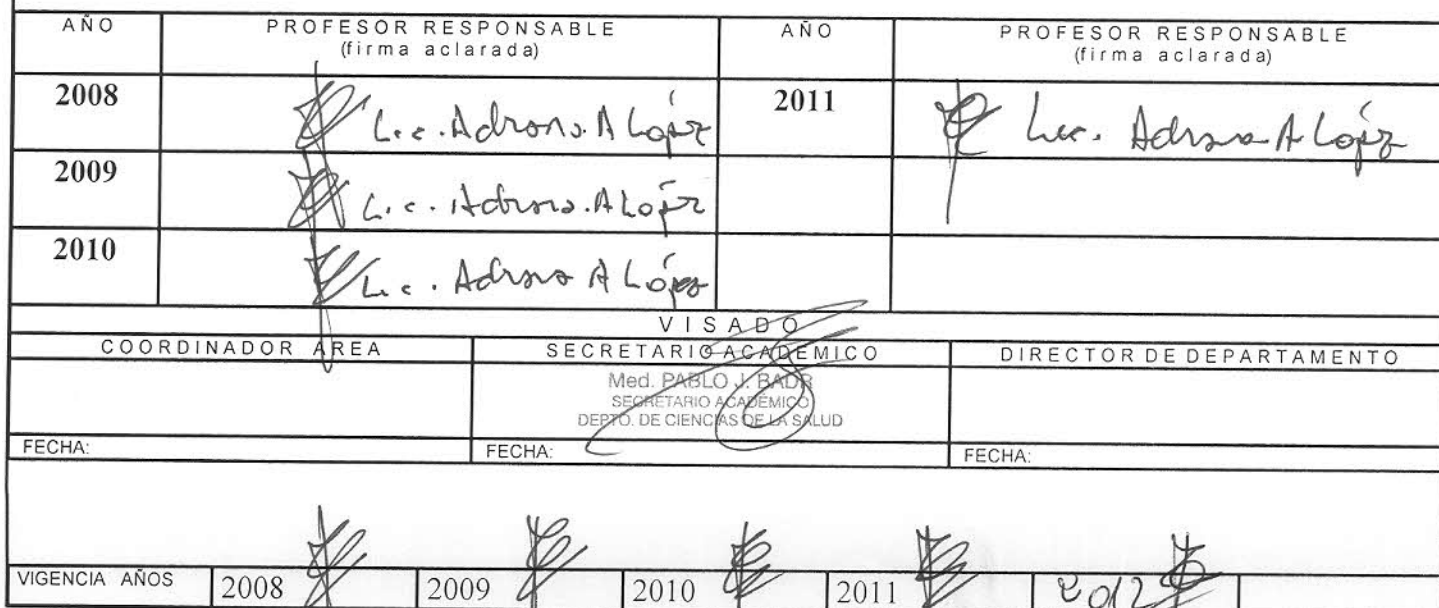 AÑO PROFESOR RESPONSABLE AÑO PROFESOR RESPONSABLE
(firma aclarada) (firma aclarada)
2008 Lic. Adriana A López 2011 Lic. Adriana A López
2009 Lic. Adriana A López
2010 Lic. Adriana A López
VISADO
COORDINADOR AREA SECRETARIO ACADEMICO DIRECTOR DE DEPARTAMENTO
Med. PABLO J. BADR
SECRETARIO ACADÉMICO
DEPTO. DE CIENCIAS DE LA SALUD
FECHA: FECHA: FECHA:
VIGENCIA AÑOS 2008 2009 2010 2011 2012